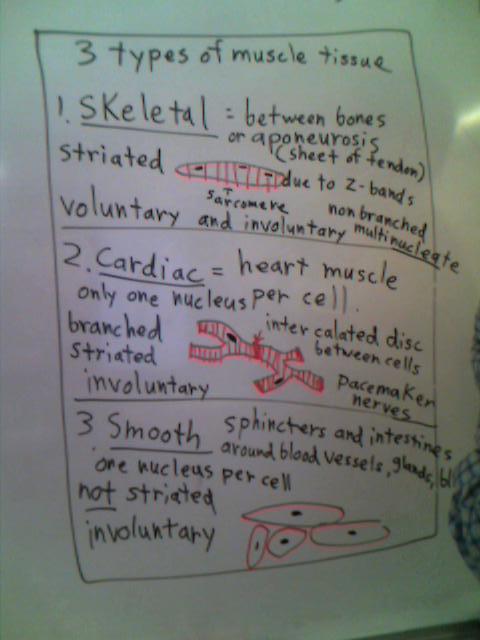 3 types of muscle tissue
1. Skeletal = between bones
or aponeurosis
(sheet of tendon)
striated due to Z-bands
sarcomere
voluntary and involuntary
nonbranched
multinucleate
2. Cardiac = heart muscle
only one nucleus per cell.
branched
striated
involuntary
intercalated disc
between cells
pacemaker
nerves
3 Smooth sphincters and intestines
around blood vessels, glands, bl
one nucleus per cell
not striated
involuntary